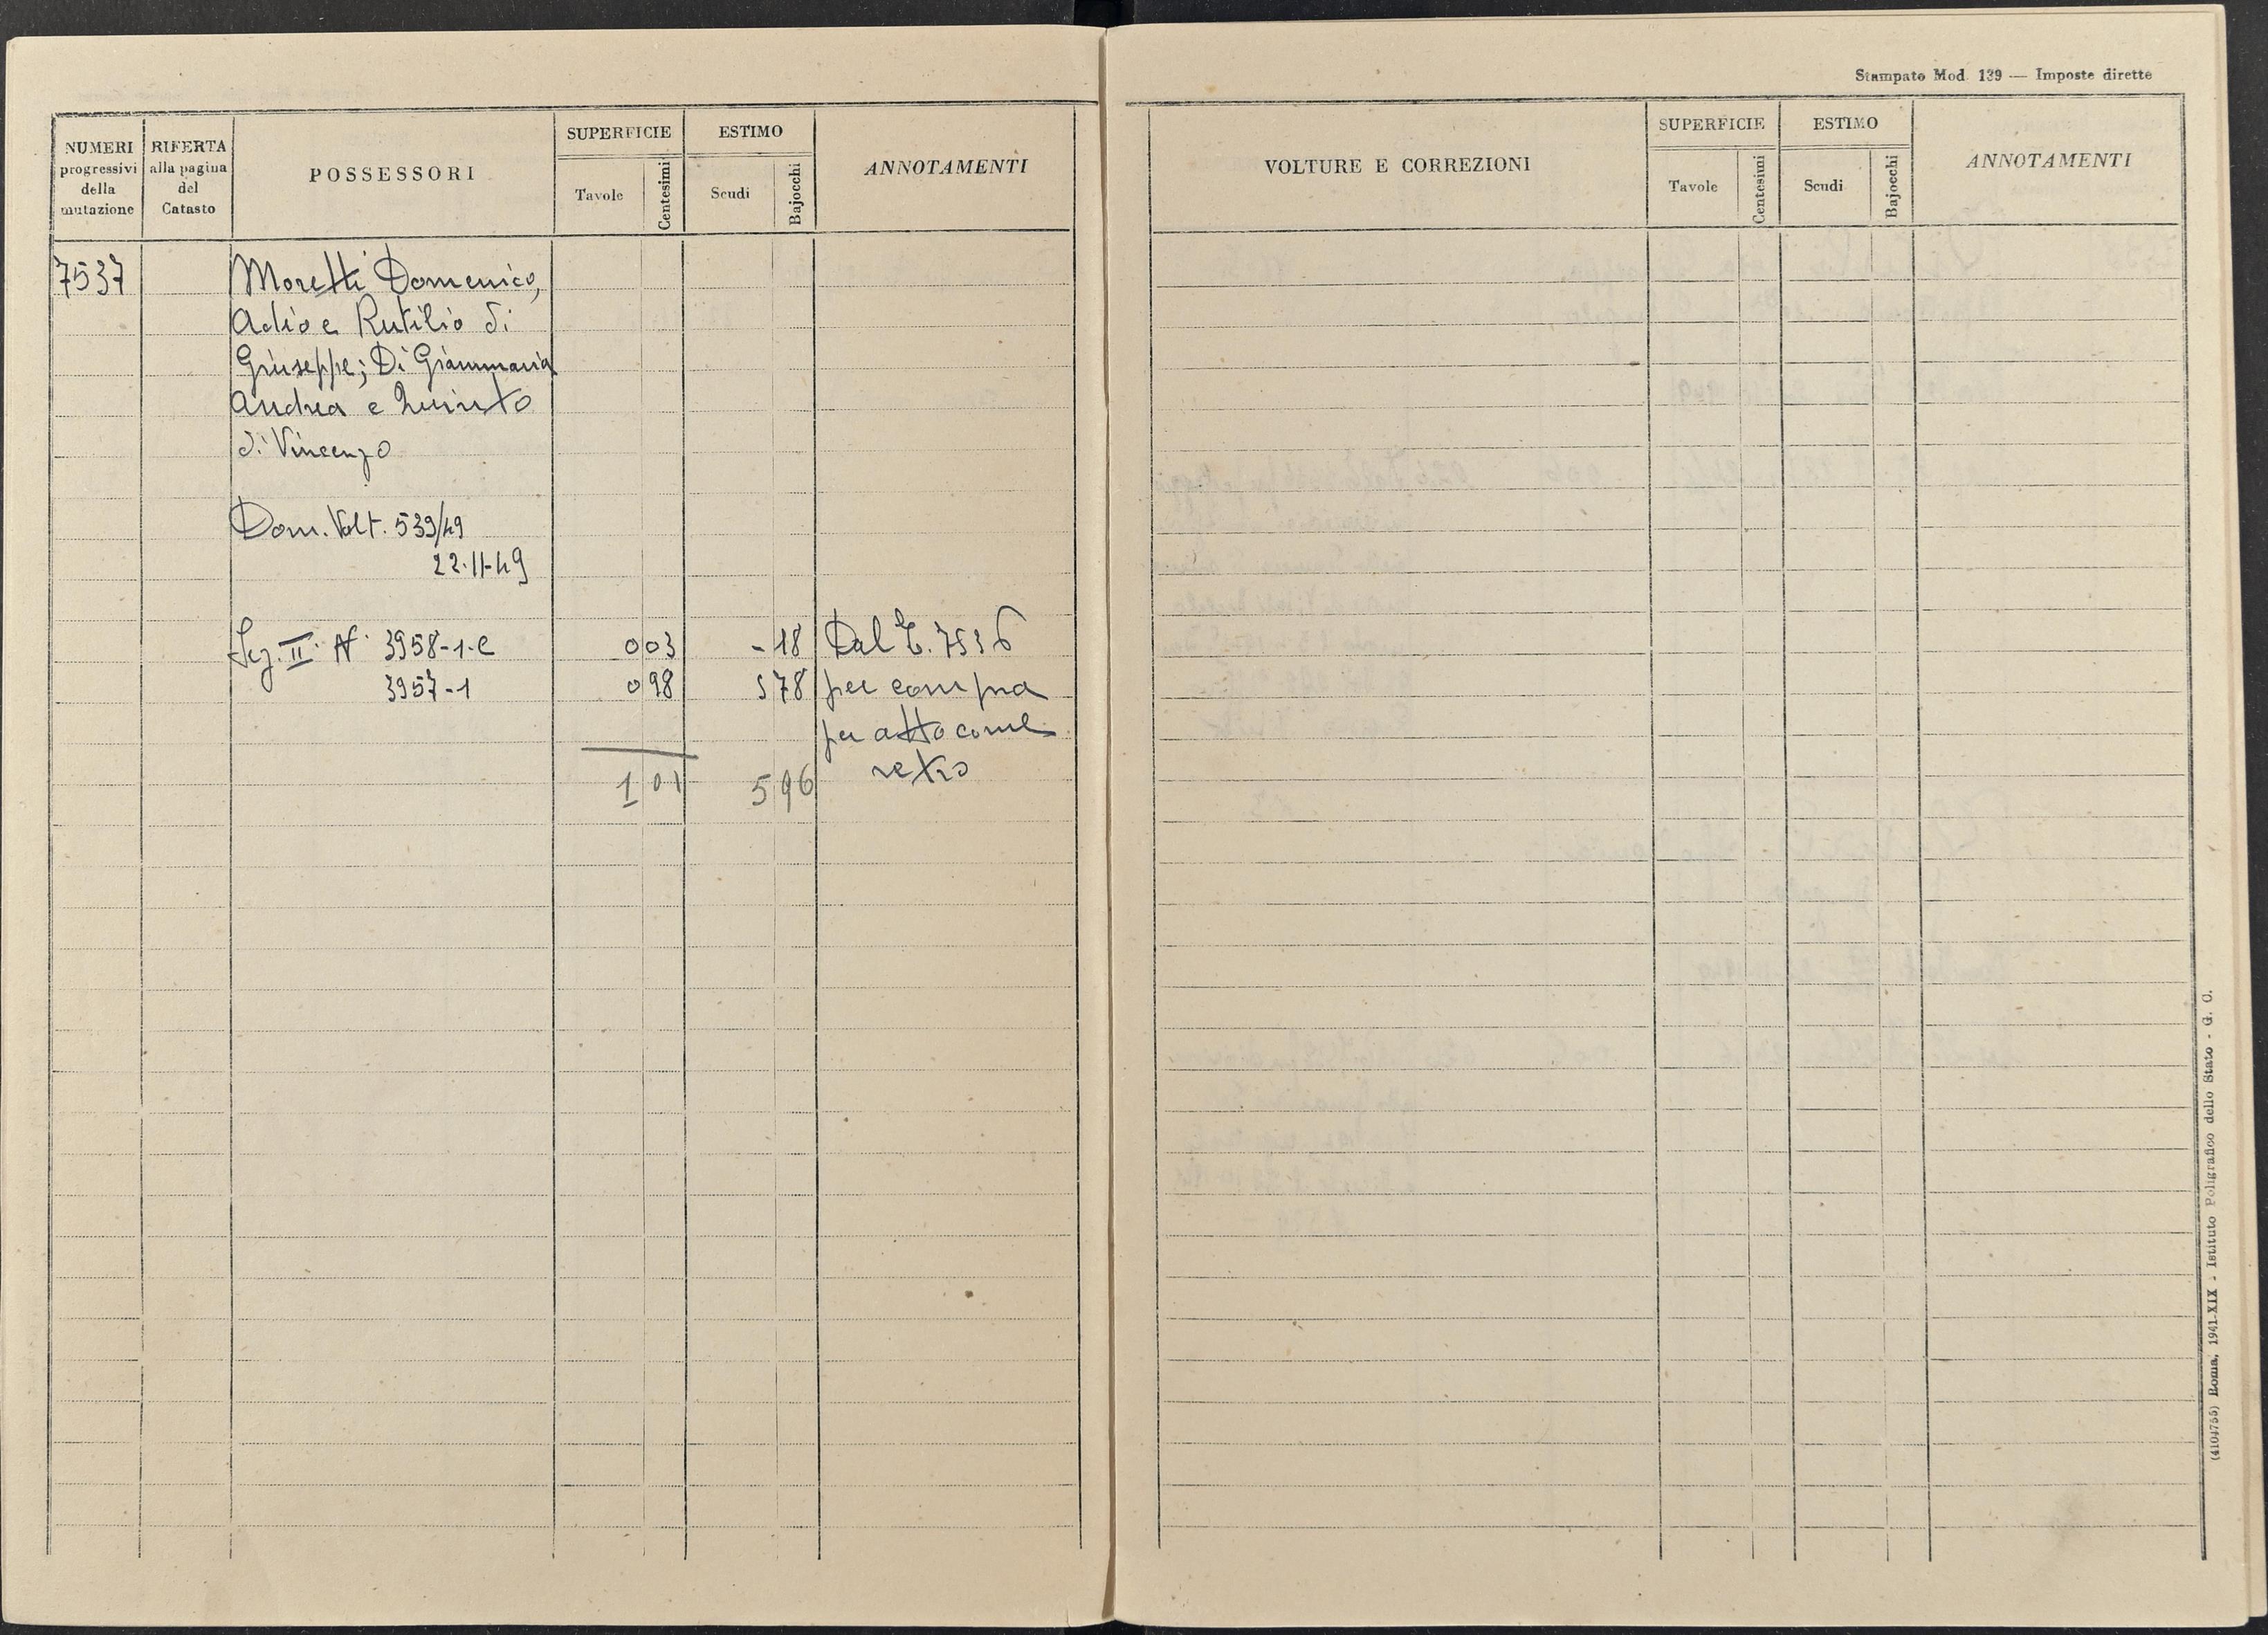 NUMERI
progressivi
della
mutazione
RIFERTA
alla pagina
del
Catasto
POSSESSORI
SUPERFICIE
Tavole
Centesimi
ESTIMO
Scudi
Bajocchi
ANNOTAMENTI
7537
Moretti Domenico,
Adio e Rutilio di
Giuseppe; Di Giammaria
Andrea e Quinto
di Vincenzo
Dom. Volt. 539/49
22-11-49
Sez. II. N. 3958-1-e 0 03 - 18 Dal T. 7536
3957-1 0 98 5 78 per compra
per atto come
retro
1 01 5 96
Stampato Mod. 139 — Imposte dirette
VOLTURE E CORREZIONI
SUPERFICIE
Tavole
Centesimi
ESTIMO
Scudi
Bajocchi
ANNOTAMENTI
(4104755) Roma, 1941-XIX - Istituto Poligrafico dello Stato - G. C.